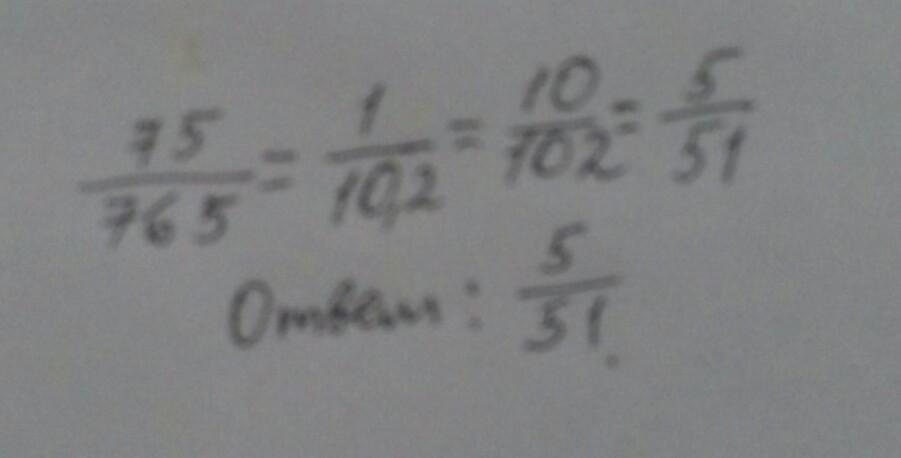 75/765 = 1/10,2 = 10/102 = 5/51
Ответ: 5/51.